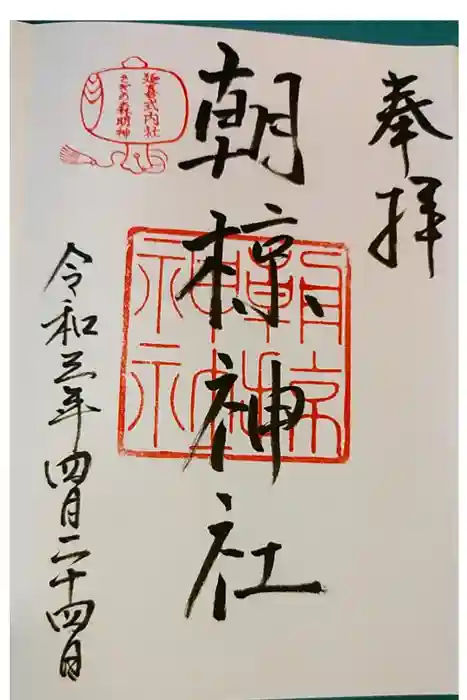 奉拝
朝椋神社
令和三年四月二十四日
延喜式内社
さぎの森明神
朝椋
神社